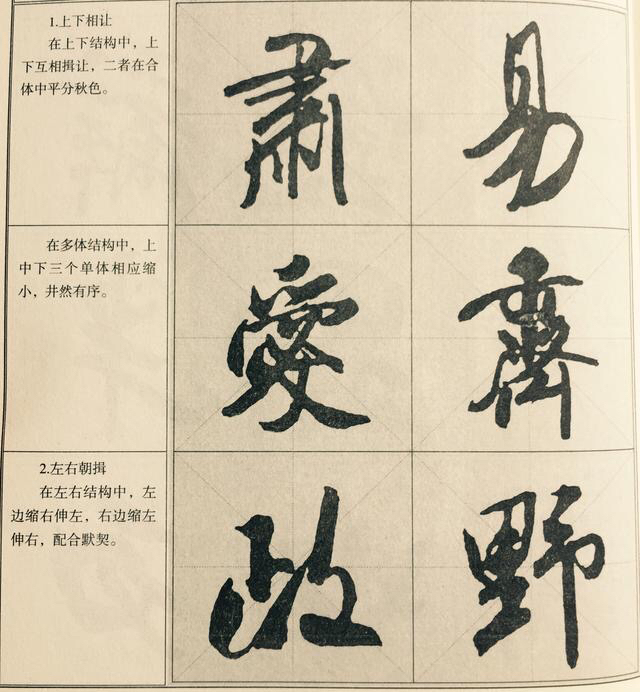 1.上下相让
在上下结构中，上
下互相揖让，二者在合
体中平分秋色。
肃 易
在多体结构中，上
中下三个单体相应缩
小，井然有序。
愛 齊
2.左右朝揖
在左右结构中，左
边缩右伸左，右边缩左
伸右，配合默契。
政 野